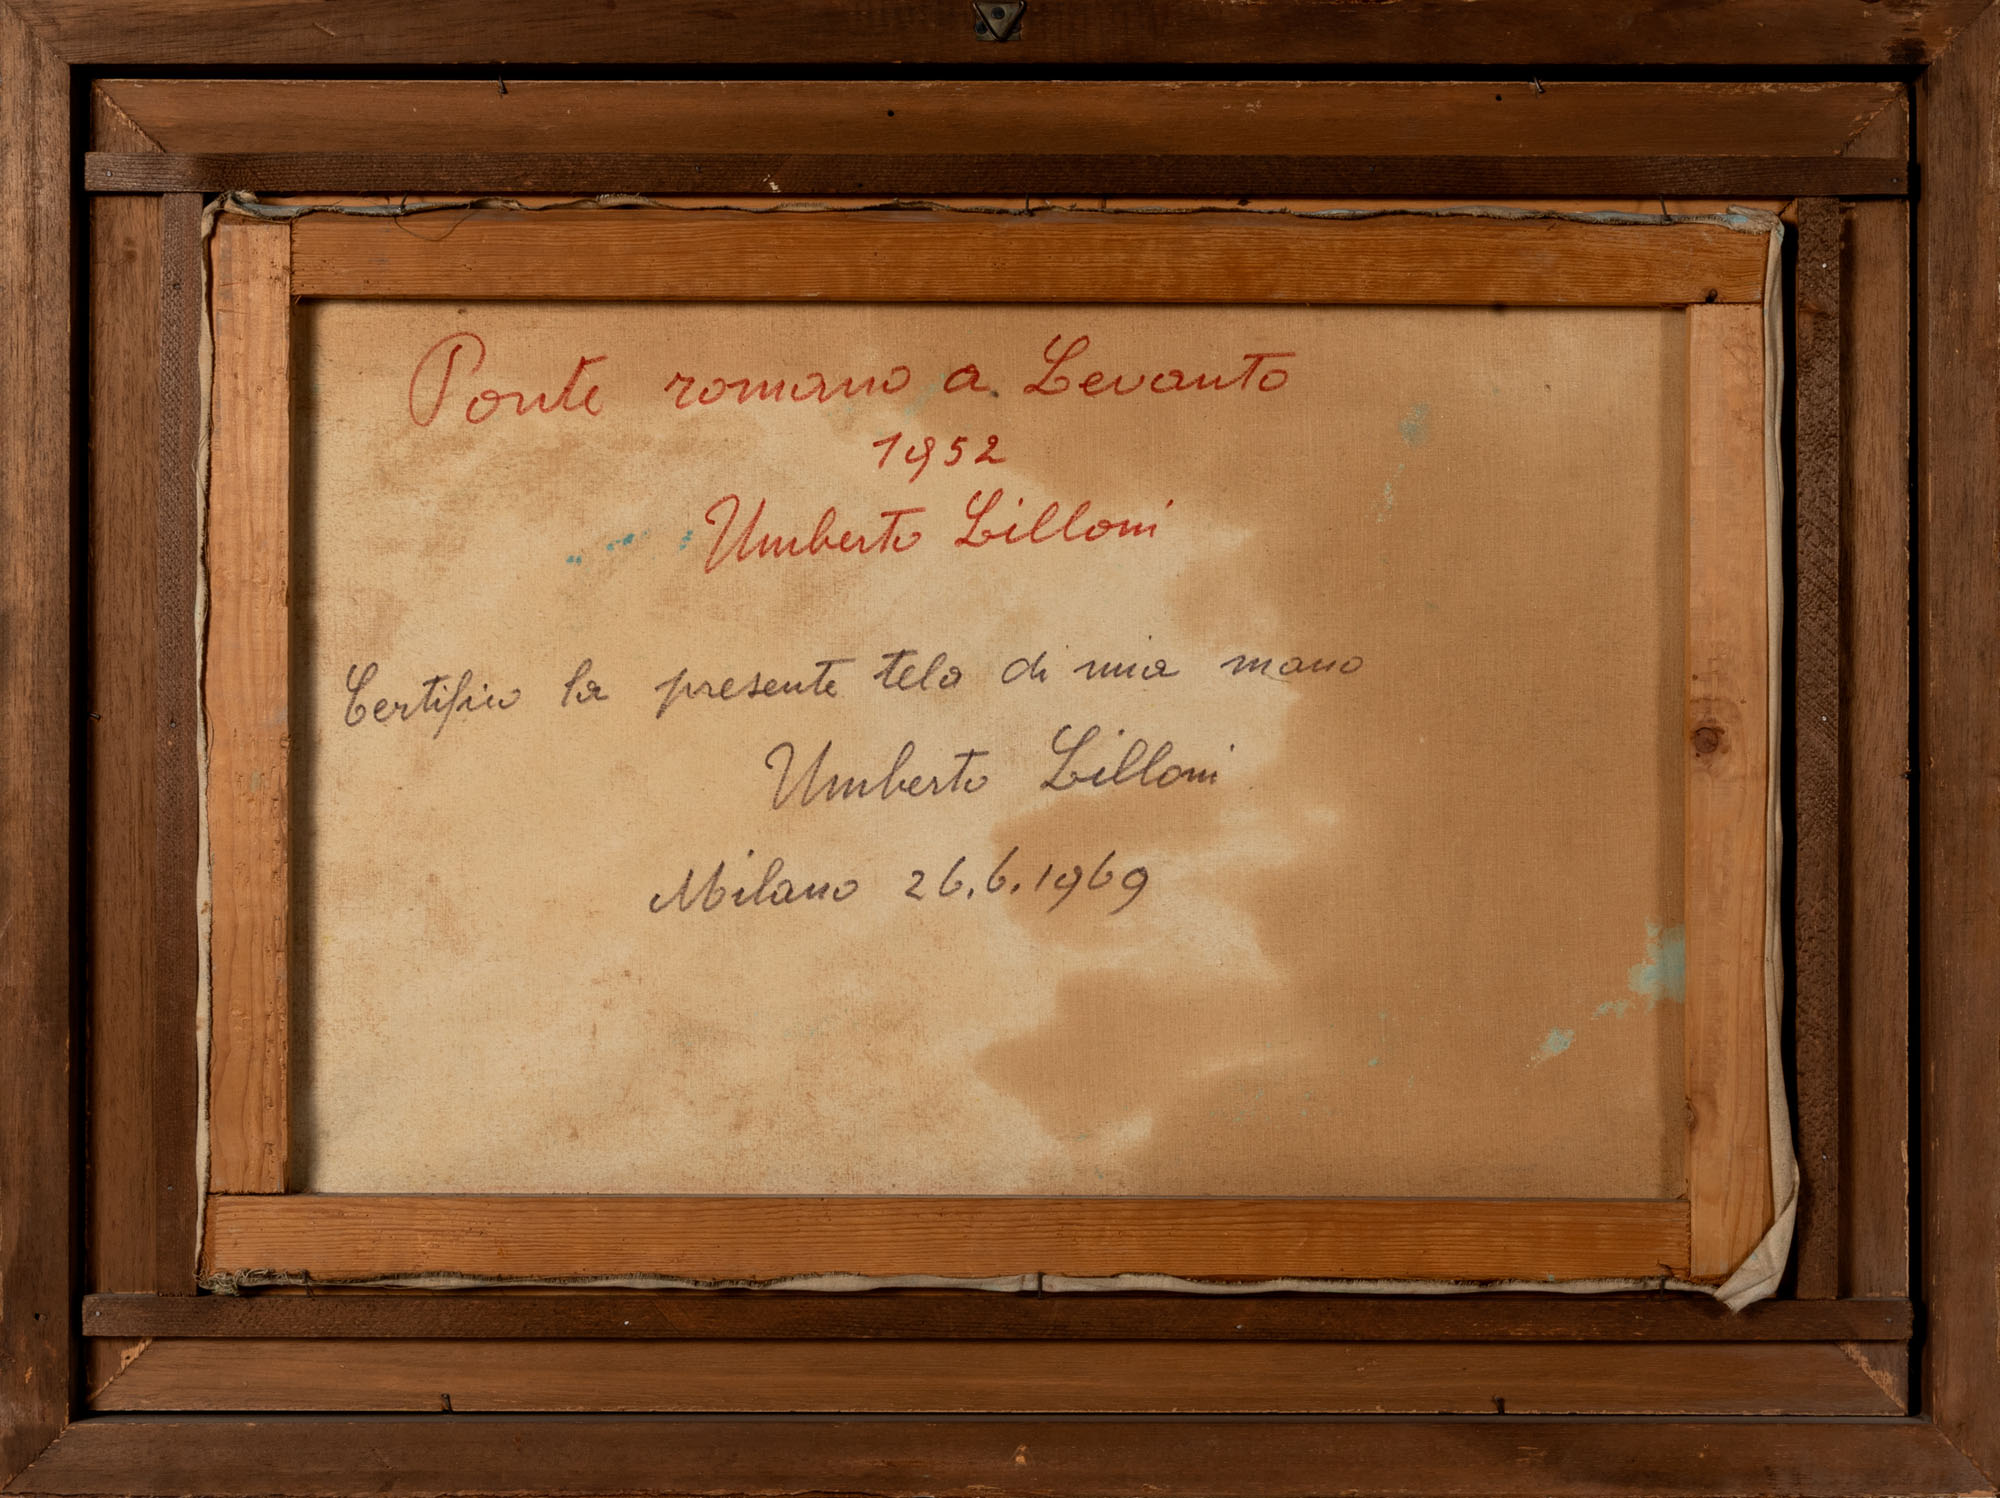 Ponte romano a Levanto
1952
Umberto Lilloni
Certifico la presente tela di mia mano
Umberto Lilloni
Milano 26.6.1969